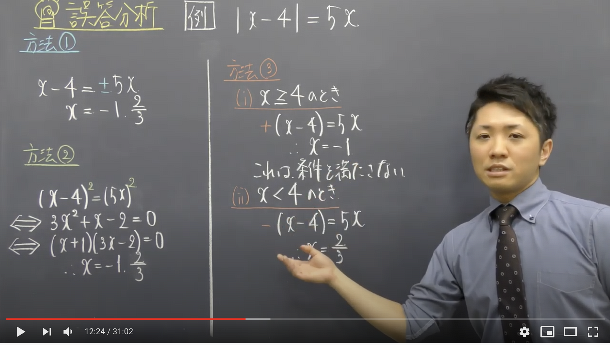 誤答分析
例 |x-4|=5x
方法①
x-4=±5x
x=-1.2/3
方法②
(x-4)²=(5x)²
⇔ 3x²+x-2=0
⇔ (x+1)(3x-2)=0
∴x=-1.2/3
方法③
(i) x≧4のとき
+(x-4)=5x
∴x=-1
これは条件を満たさない
(ii) x<4のとき
-(x-4)=5x
∴x=2/3
12:24 / 31:02